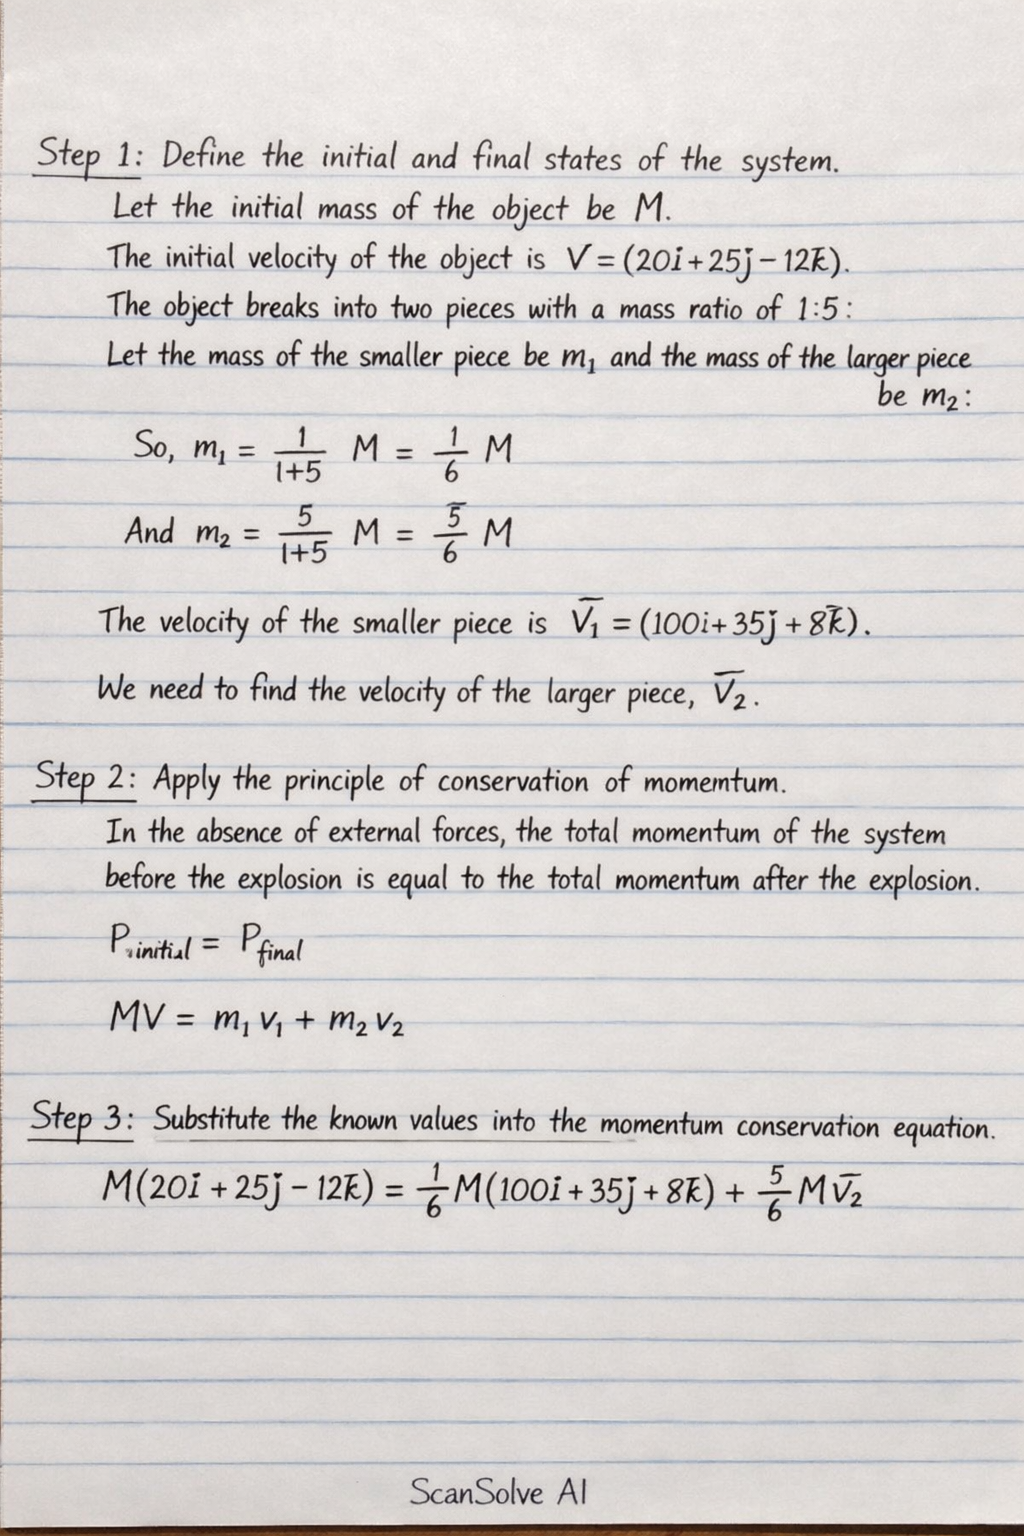 Step 1: Define the initial and final states of the system.
Let the initial mass of the object be M.
The initial velocity of the object is V = (20i + 25j − 12k̄).
The object breaks into two pieces with a mass ratio of 1:5:
Let the mass of the smaller piece be m₁ and the mass of the larger piece
be m₂:
So, m₁ = 1/(1+5) M = 1/6 M
And m₂ = 5/(1+5) M = 5/6 M
The velocity of the smaller piece is V̄₁ = (100i + 35j + 8k̄).
We need to find the velocity of the larger piece, V̄₂.
Step 2: Apply the principle of conservation of momentum.
In the absence of external forces, the total momentum of the system
before the explosion is equal to the total momentum after the explosion.
P initial = P final
MV = m₁v₁ + m₂v₂
Step 3: Substitute the known values into the momentum conservation equation.
M(20i + 25j − 12k̄) = 1/6 M(100i + 35j + 8k̄) + 5/6 M v̄₂
ScanSolve AI